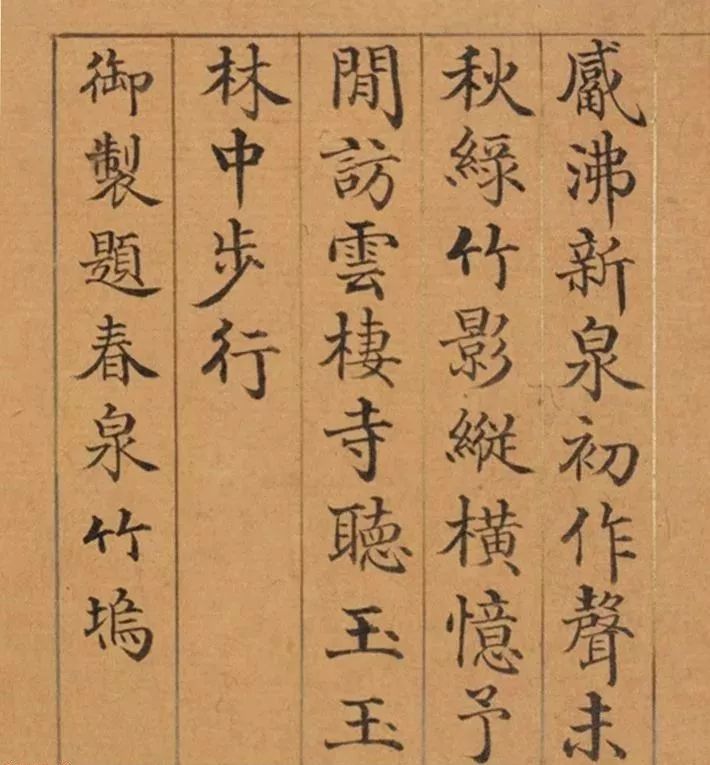 觱沸新泉初作聲未
秋綠竹影縱橫憶予
閒訪雲棲寺聽玉玉
林中步行
御製題春泉竹塢